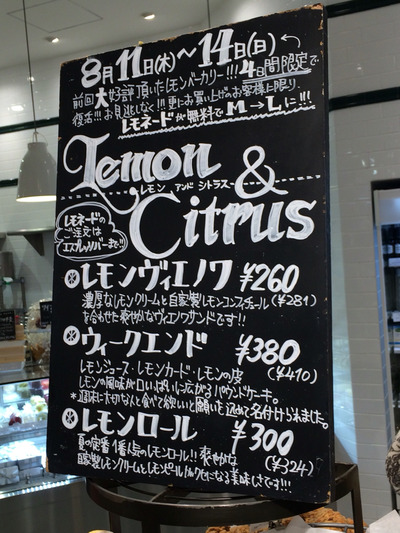 8月11日(木)～14日(日)
前回大好評頂いたレモンベーカリー!!!4日間限定で
復活!!!お見逃しなく!!!更にお買い上げのお客様に限り、
レモネードが無料でM→Lに!!!
Lemon &
レモン アンド シトラス
Citrus
レモネードの
ご注文は
エスプレッソバーまで!!
レモンヴィエノワ ¥260
濃厚なレモンクリームと自家製レモンコンフィチュール (¥281)
を合わせた爽やかなヴィエノワサンドです!!
ウィークエンド ¥380
レモンジュース・レモンカード・レモンの皮 (¥410)
レモンの風味が口いっぱいに広がるパウンドケーキ。
*週末に大切な人と食べて欲しいと願いを込めて名付けられました。
レモンロール ¥300
夏の定番1番人気のレモンロール!!爽やかな (¥324)
自家製レモンクリームとレモンピール
になる美味しさです!!!